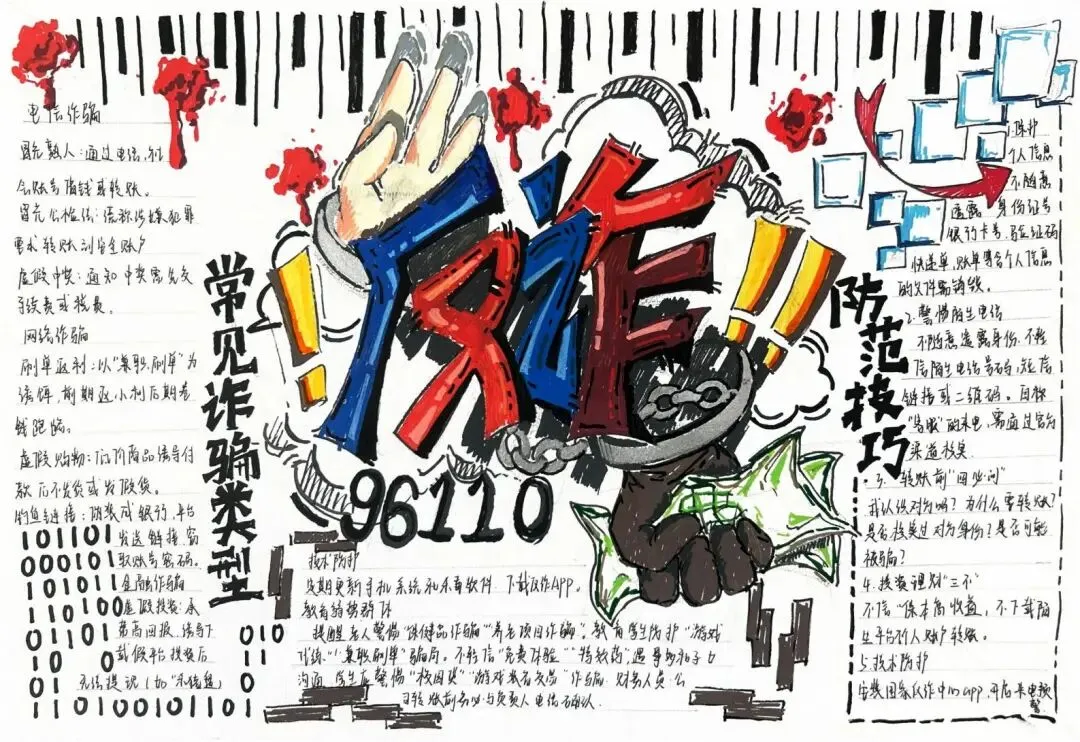 电信诈骗
冒充熟人：通过电话、社
会账号借钱或转账。
冒充公检法：谎称涉嫌犯罪
要求转账到安全账户
虚假中奖：通知中奖需先交
手续费或税费。
网络诈骗
刷单返利：以"兼职刷单"为
诱饵，前期返小利后期卷
钱跑路。
虚假购物：低价商品诱导付
款后不发货或发假货。
钓鱼链接：伪装成银行、平台
发送链接，窃
取账号密码。
金融诈骗
虚假投资：承
诺高回报，诱导下
载假平台投资后
无法提现（如"杀猪盘）
101101
000101
101011
010100
常见诈骗类型
反诈
96110
技术防护
定期更新手机系统和杀毒软件，下载反诈APP。
教育弱势群体
提醒老人警惕"保健品诈骗""养老项目诈骗"。教育学生防护"游戏
""兼职刷单"骗局。不轻信"免费体验""特效药"，遇事多和子女
沟通，学生应警惕"校园贷""游戏装备交易"诈骗，财务人员
转账前务必与负责人电话确认。
防范技巧
1.保护
个人信息
不随意
透露，身份证号
银行卡号、验证码
快递单、账单等含个人信息
的文件需销毁。
2.警惕陌生电话
不随意透露身份，不轻
信陌生电话号码，短信
链接或二维码。自称
"客服"的来电，需通过官方
渠道核实
3.转账前"四必问"
我认识对方吗？为什么要转账？
是否核实过对方身份？是否可能
被骗？
4.投资理财"三不"
不信"保本高收益，不下载陌
生平台个人账户转账。
5.技术防护
安装国家反诈中心app，开启来电预
警